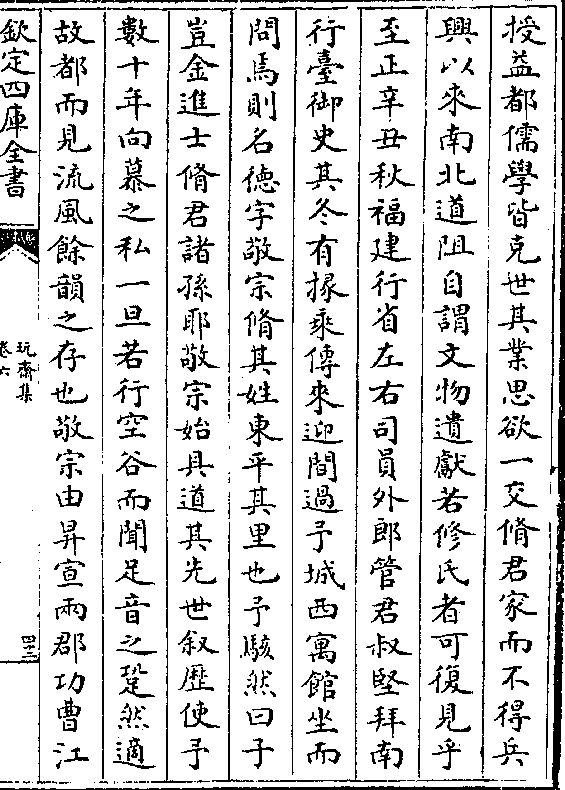 授益都儒學皆克世其業思欲一交脩君家而不得兵
興以來南北道阻自謂文物遺獻若修氏者可復見乎
至正辛丑秋福建行省左右司員外郎管君叔堅拜南
行臺御史其冬有掾乘傳來迎間過予城西寓館坐而
問焉則名德字敬宗脩其姓東平其里也予駭然曰子
豈金進士脩君諸孫耶敬宗始具道其先世叙歴使予
數十年向慕之私一旦若行空谷而聞足音之跫然適
故都而見流風餘韻之存也敬宗由昇宣兩郡功曹江
欽定四庫全書
玩齋集
卷六
四三